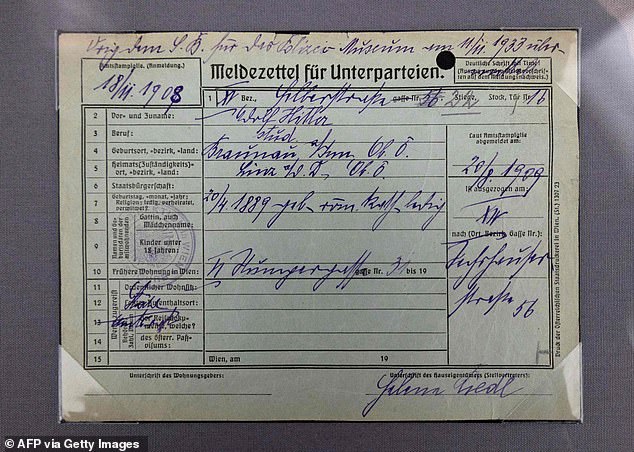 Orig. dem S. B. für das Polizei Museum am 11/III. 1933 über
Amtsstampiglie. (Anmeldung.)
18/11. 1908
Meldezettel für Unterparteien.
Deutsche Schrift mit Tinte!
1 XV Bez., Felberstraße Gasse Nr. 22 Stiege, Stock, Tür 16
2 Vor- und Zuname: Adolf Hitler
3 Beruf: stud.
4 Geburtsort, -bezirk, -land: Braunau a/Inn Ob. Ö.
5 Heimats(Zuständigkeits)-
ort, -bezirk, -land: Linz a/D. Ob. Ö.
6 Staatsbürgerschaft:
7 Geburtstag, -monat, -jahr: 20/4 1889 geb. röm. kath. ledig
Religion; ledig, verheiratet,
verwitwet?
8 Gattin, auch
Mädchenname:
9 Kinder unter
18 Jahren:
10 Frühere Wohnung in Wien: VI Stumpergasse Gasse Nr. 31 bis 19
11 Ordentlicher Wohnsitz:
12
13
14 des österr. Paß-
visums:
15 Wien, am 19
Laut Amtsstampiglie
abgemeldet am:
20/8 1909
Ist ausgezogen am:
XIV
nach (Ort, Bezirk, Gasse Nr.):
Sechshauser
straße 56
Druck der Österreichischen Staatsdruckerei in Wien. (St.) 1207 23
Unterschrift des Wohnungsgebers:
Unterschrift des Hauseigentümers (Stellvertreters):
Helene Riedl
© AFP via Getty Images